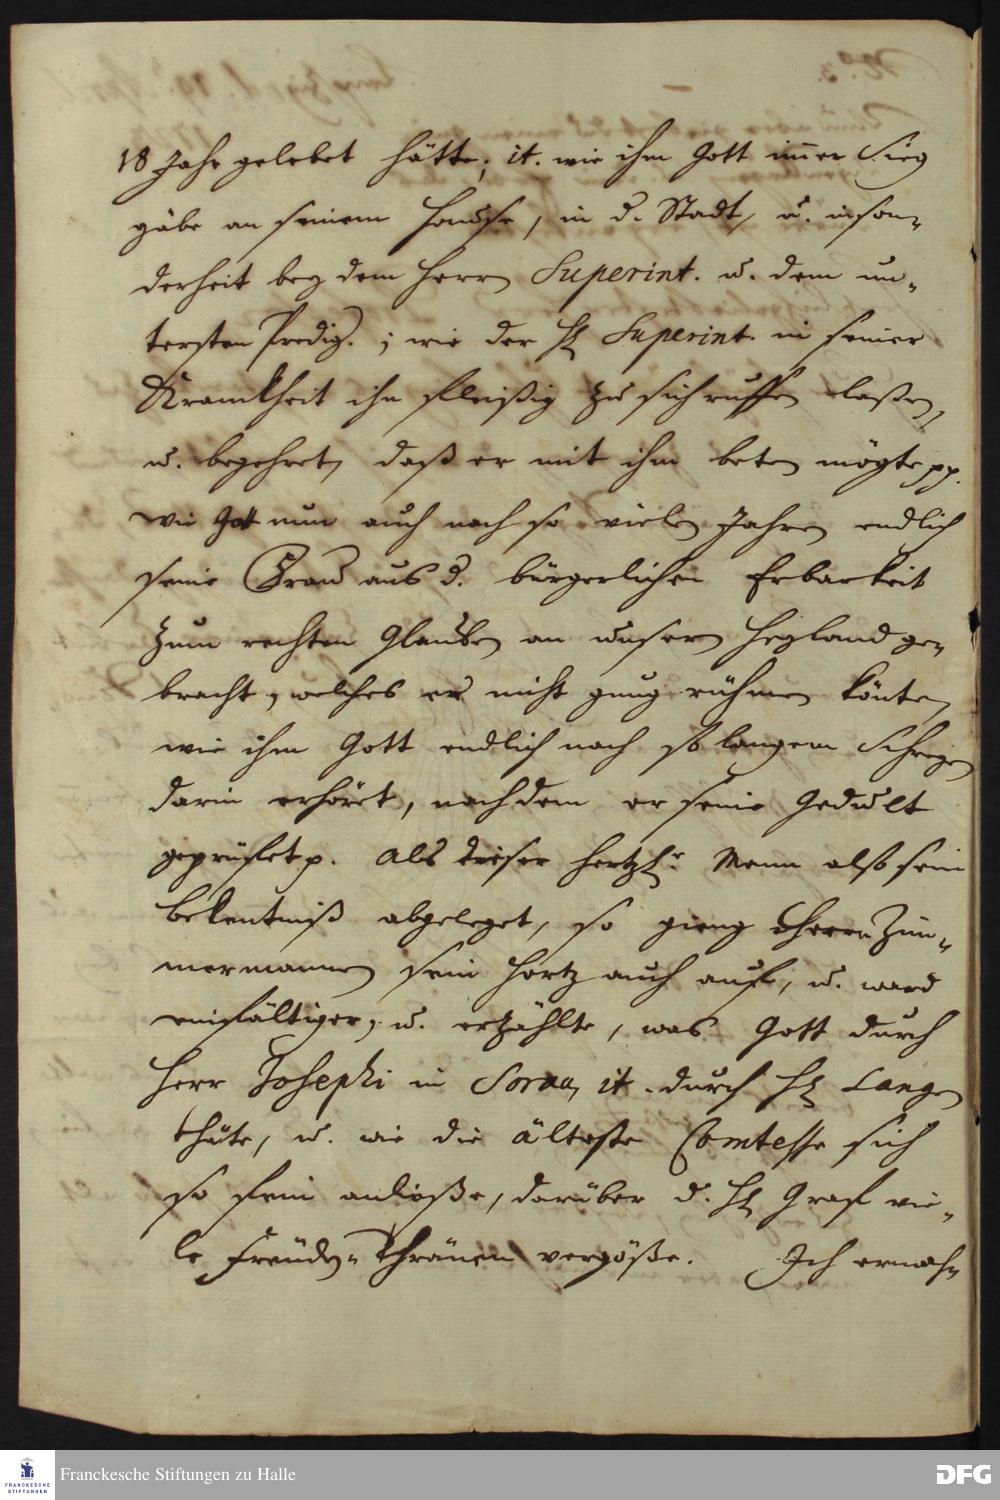 18 Jahr gelebet hätte; it. wie ihm Gott im̅er Sieg
gäbe an seinem Hause, in d. Stadt, u. inson-
derheit bey dem Herrn Superint. u. dem un-
tersten Predig.; wie der H. Superint. in seiner
Kranckheit ihn fleißig zu sich ruffen laßen,
u. begehret, daß er mit ihm beten mögte pp.
wie Gott nun auch nach so vielen Jahren endlich
seine Frau aus d. bürgerlichen Erbarkeit
zum rechten Glauben an unsern Heyland ge-
bracht, welches er nicht gnug rühmen könte,
wie ihn Gott endlich nach so langem Schreyen
darin erhöret, nachdem er seine Gedult
geprüfet p. Als dieser hertzl. Mann also sein
Bekentniß abgeleget, so gieng Herrn Zim-
mermannen sein Hertz auch auf, u. ward
einfältiger, u. erzählte, was Gott durch
Herr Josephi in Sorau, it. durch H. Langen
thäte, u. wie die älteste Comtesse sich
so fein anließe, darüber d. H. Graf vie-
le Freuden-Thränen vergöße. Ich ermah-
Franckesche Stiftungen zu Halle
FRANCKESCHE
STIFTUNGEN
DFG